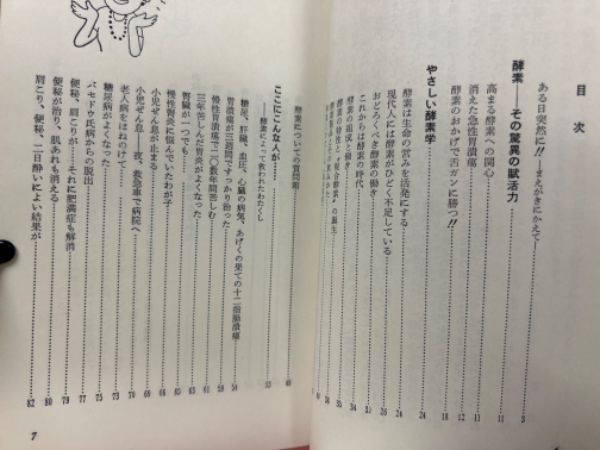 目次
ある日突然に!!――まえがきにかえて 5
酵素――その驚異の賦活力 11
高まる酵素への関心 11
消えた急性胃潰瘍
酵素のおかげで舌ガンに勝つ!!
やさしい酵素学 24
酵素は生命の営みを活発にする 24
現代人には酵素がひどく不足している 26
おどろくべき酵素の働き
これからは酵素の時代
酵素の組成と働き
酵素の個性と、"複合酵素"の誕生
酵素についての質問箱 49
ここにこんな人が…… 53
――酵素によって救われたわたくし
糖尿、肝臓、血圧、心臓の病気、あげくの果ての十二指腸潰瘍 54
胃潰瘍が三週間ですっかり治った 58
慢性胃潰瘍で二〇数年間苦しむ 59
三年苦しんだ胃炎がよくなった 61
腎臓が一つでも…… 63
慢性腎炎に悩んでいたわが子
小児ぜん息が止まる
小児ぜん息――夜、救急車で病院へ
老人病をはねのけて
糖尿病がよくなった 75
バセドウ氏病からの脱出 77
便秘、肩こりが……それに肥満症も解消 79
便秘が治り、肌あれも消える 80
肩こり、便秘、二日酔いによい結果が 82
7